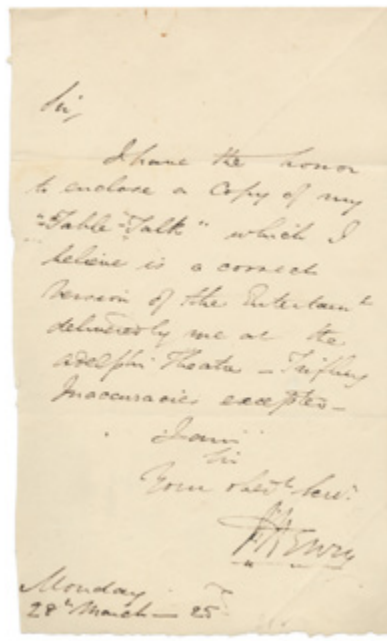 Sir,
I have the honor
to enclose a Copy of my
"Table-Talk" which I
beleive is a correct
Version of the Entertaint
delivered by me at the
adelphi Theatre – Trifling
Inaccuracies excepted –
I am
Sir
Your obedt Servt
Henry
Monday
28th March – 25